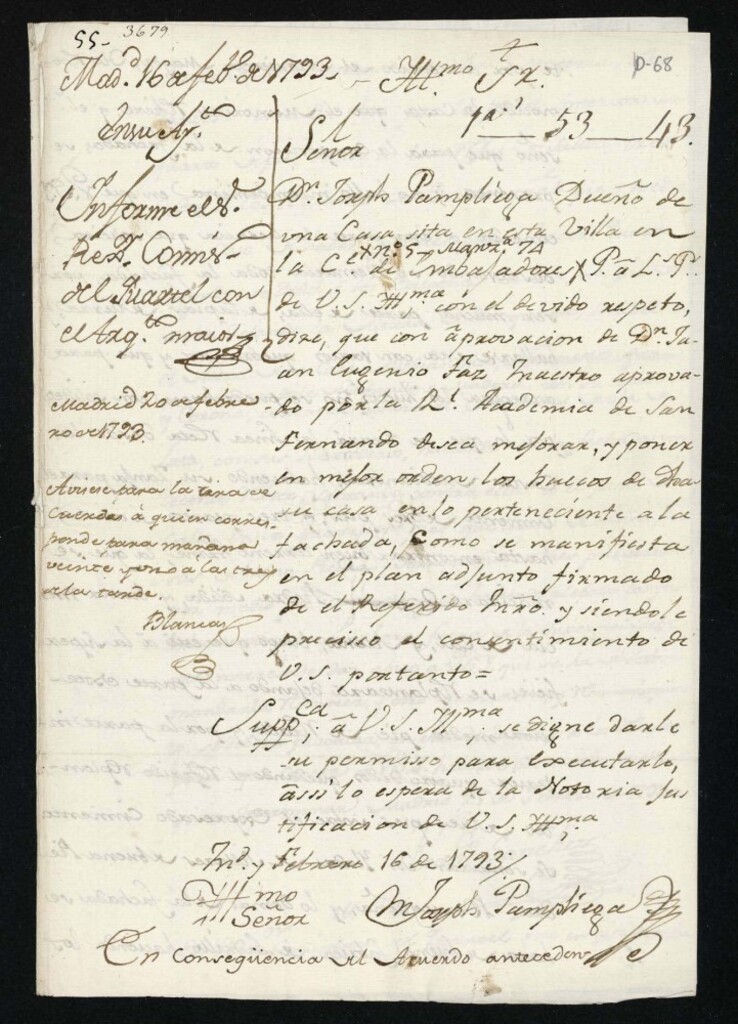 55-
3679
D-68
Mad.d 16 de feb.o de 1793.
En su Ay.to
Informe el S.r
Rex.r Comis.
del Quartel con
el Arq.to maior
Madrid 20 de febre-
ro de 1793.
Avisese para la tira de
Cuerdas á quien corres-
ponde para mañana
veinte y uno á las tres
de la tarde.
Blancas
Yll.mo Sr.
1a. 53 43.
Señor
Dn. Joseph Pampliega Dueño de
una Casa sita en esta Villa en
la C.e de Embajadores X P. â L.s P.s
X nº 5 Manz.a 74
de V. S. Yll.ma con el devido respeto,
dize, que con âprovacion de Dn. Ju-
an Eugenio Faz Maestro aprova-
do por la Rl. Academia de San
Fernando desea mejorar, y poner
en mejor orden, los huecos de dha
su casa en lo perteneciente a la
fachada, Como se manifiesta
en el plan adjunto firmado
de el Referido Mro. y siendole
precisso el consentimiento de
V. S. portanto=
Supp.ca â V. S. Yll.ma se digne darle
su permisso para executarlo,
âssi lo espera de la Notoria Jus
tificacion de V. S. Yll.ma
M.d y Febrero 16 de 1793
Yll.mo
Señor
Joseph Pampliega
En Conseqüencia del Acuerdo anteceden